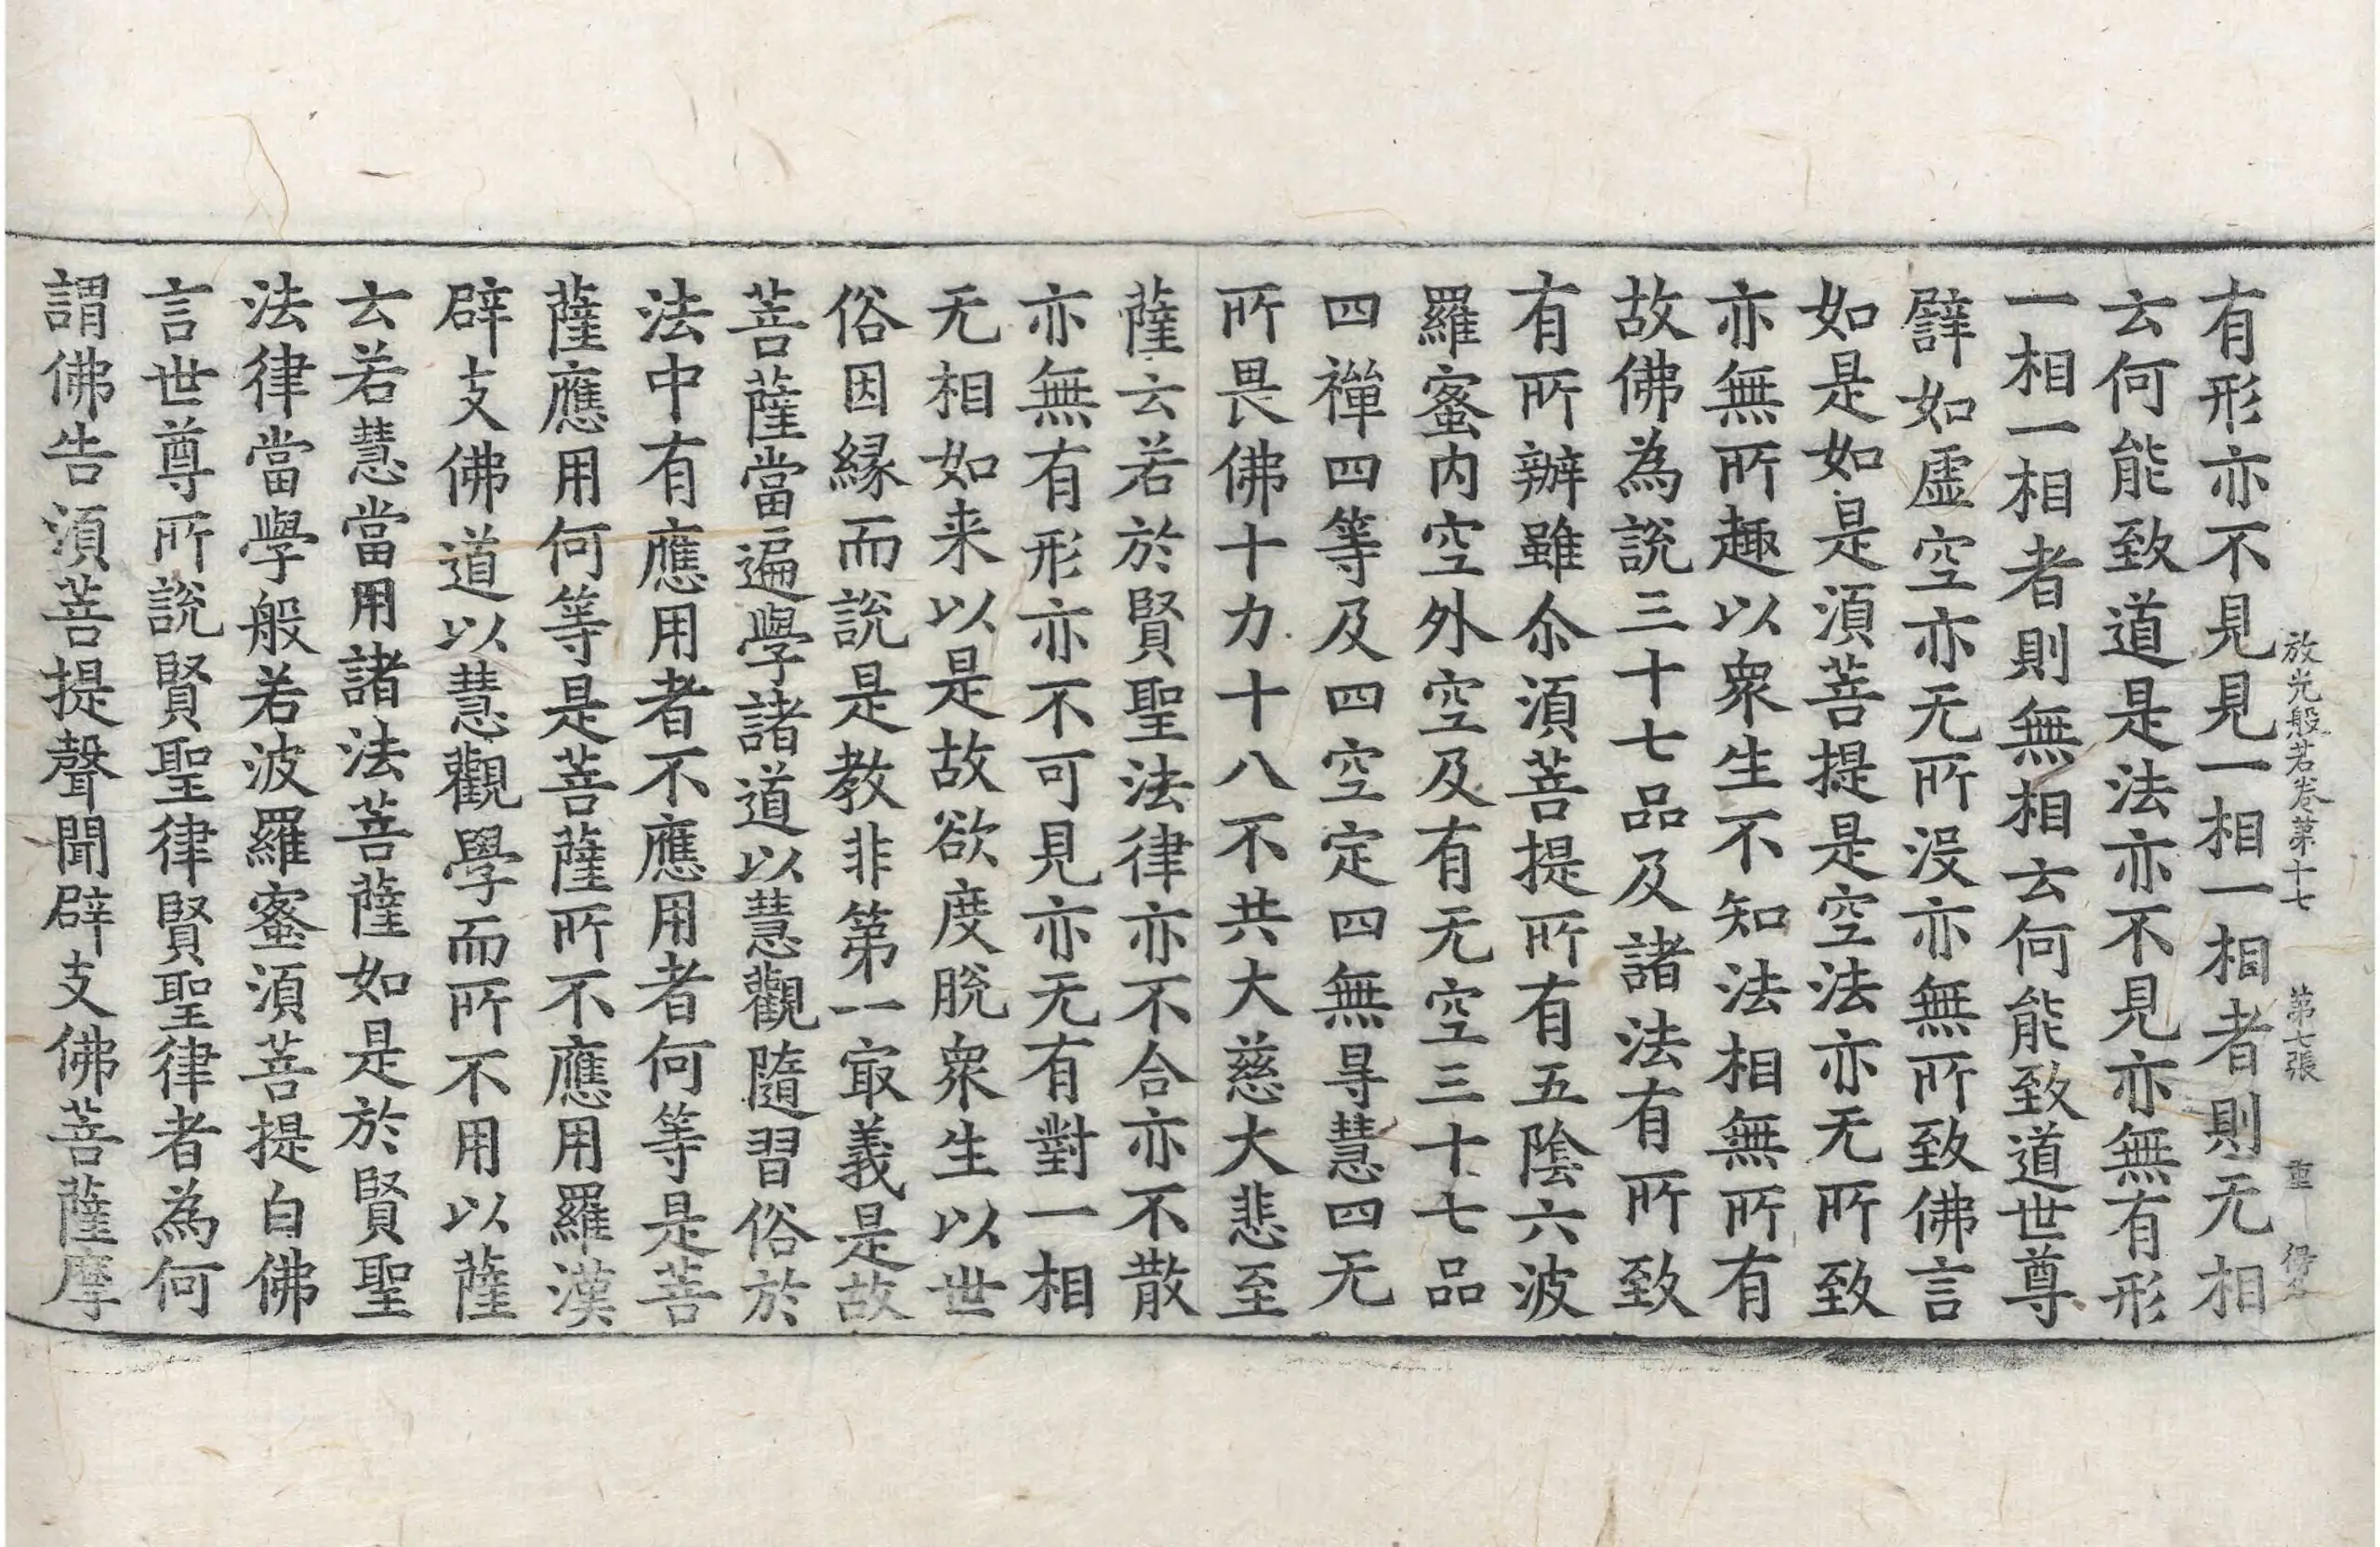 放光般若卷第十七 第七張 重
有形亦不見見一相一相者則无相
云何能致道是法亦不見亦無有形
一相一相者則無相云何能致道世尊
譬如虛空亦无所沒亦無所致佛言
如是如是須菩提是空法亦无所致
亦無所趣以衆生不知法相無所有
故佛為說三十七品及諸法有所致
有所辦雖尒須菩提所有五陰六波
羅蜜內空外空及有无空三十七品
四禪四等及四空定四無㝵慧四无
所畏佛十力十八不共大慈大悲至
薩云若於賢聖法律亦不合亦不散
亦無有形亦不可見亦无有對一相
无相如来以是故欲度脫衆生以世
俗因緣而說是教非第一㝡義是故
菩薩當遍學諸道以慧觀隨習俗於
法中有應用者不應用者何等是菩
薩應用何等是菩薩所不應用羅漢
辟支佛道以慧觀學而所不用以薩
云若慧當用諸法菩薩如是於賢聖
法律當學般若波羅蜜須菩提白佛
言世尊所說賢聖律賢聖律者為何
謂佛告須菩提聲聞辟支佛菩薩摩